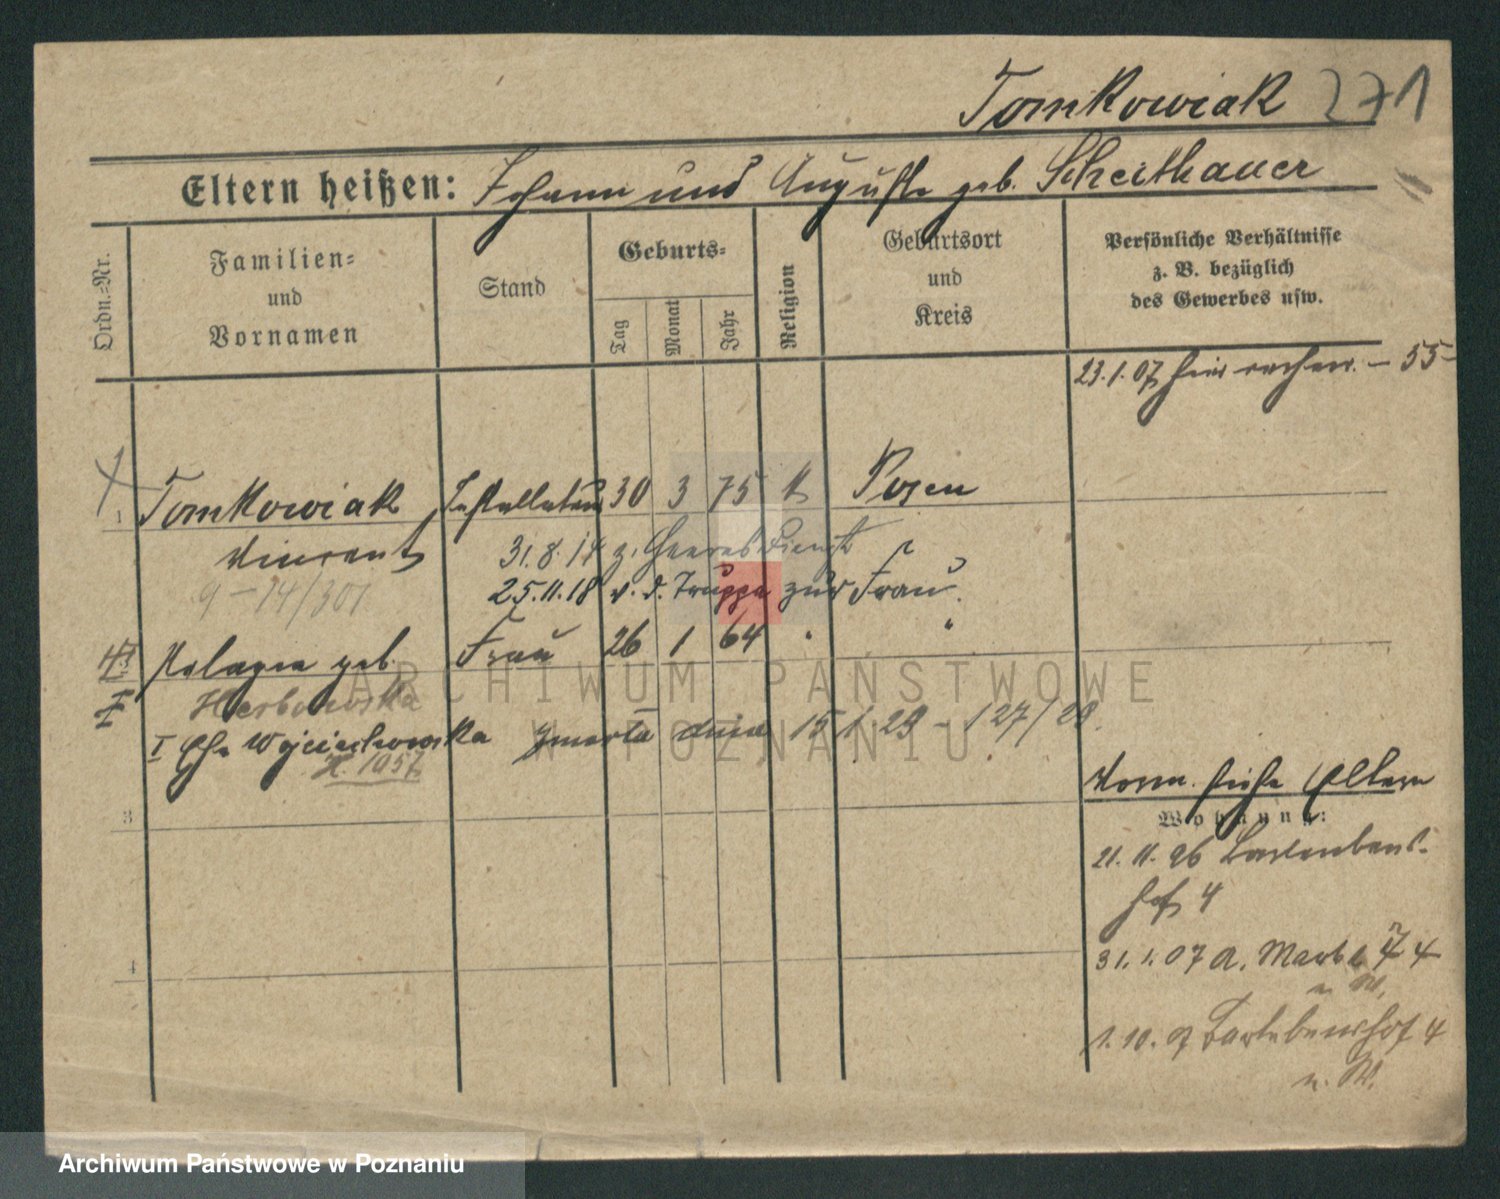 Tomkowiak 271
Eltern heißen: Johann und Auguste geb. Scheithauer
Ordn.-Nr.
Familien-
und
Vornamen
Stand
Geburts-
Tag
Monat
Jahr
Religion
Geburtsort
und
Kreis
Persönliche Verhältnisse
z. B. bezüglich
des Gewerbes usw.
23.1.07 - 55-
1 Tomkowiak Installateur 30 3 75 k Posen
Vincent 31.8.14 z. Heeresdienst
9-14/301 25.11.18 v. d. Truppe zur Frau.
Pelagia geb. Frau 26 1 64 " "
I Ehe Wojciechowska zmarła dnia 15 1 29 - 127/29.
H. 1057
3
Vorm. siehe Eltern
Wohnung:
21.11.96
hof 4
4
31.1.07 A. Markt 74
n. W.
1.10.07 4
n. W.
ARCHIWUM PAŃSTWOWE
W POZNANIU.
Archiwum Państwowe w Poznaniu